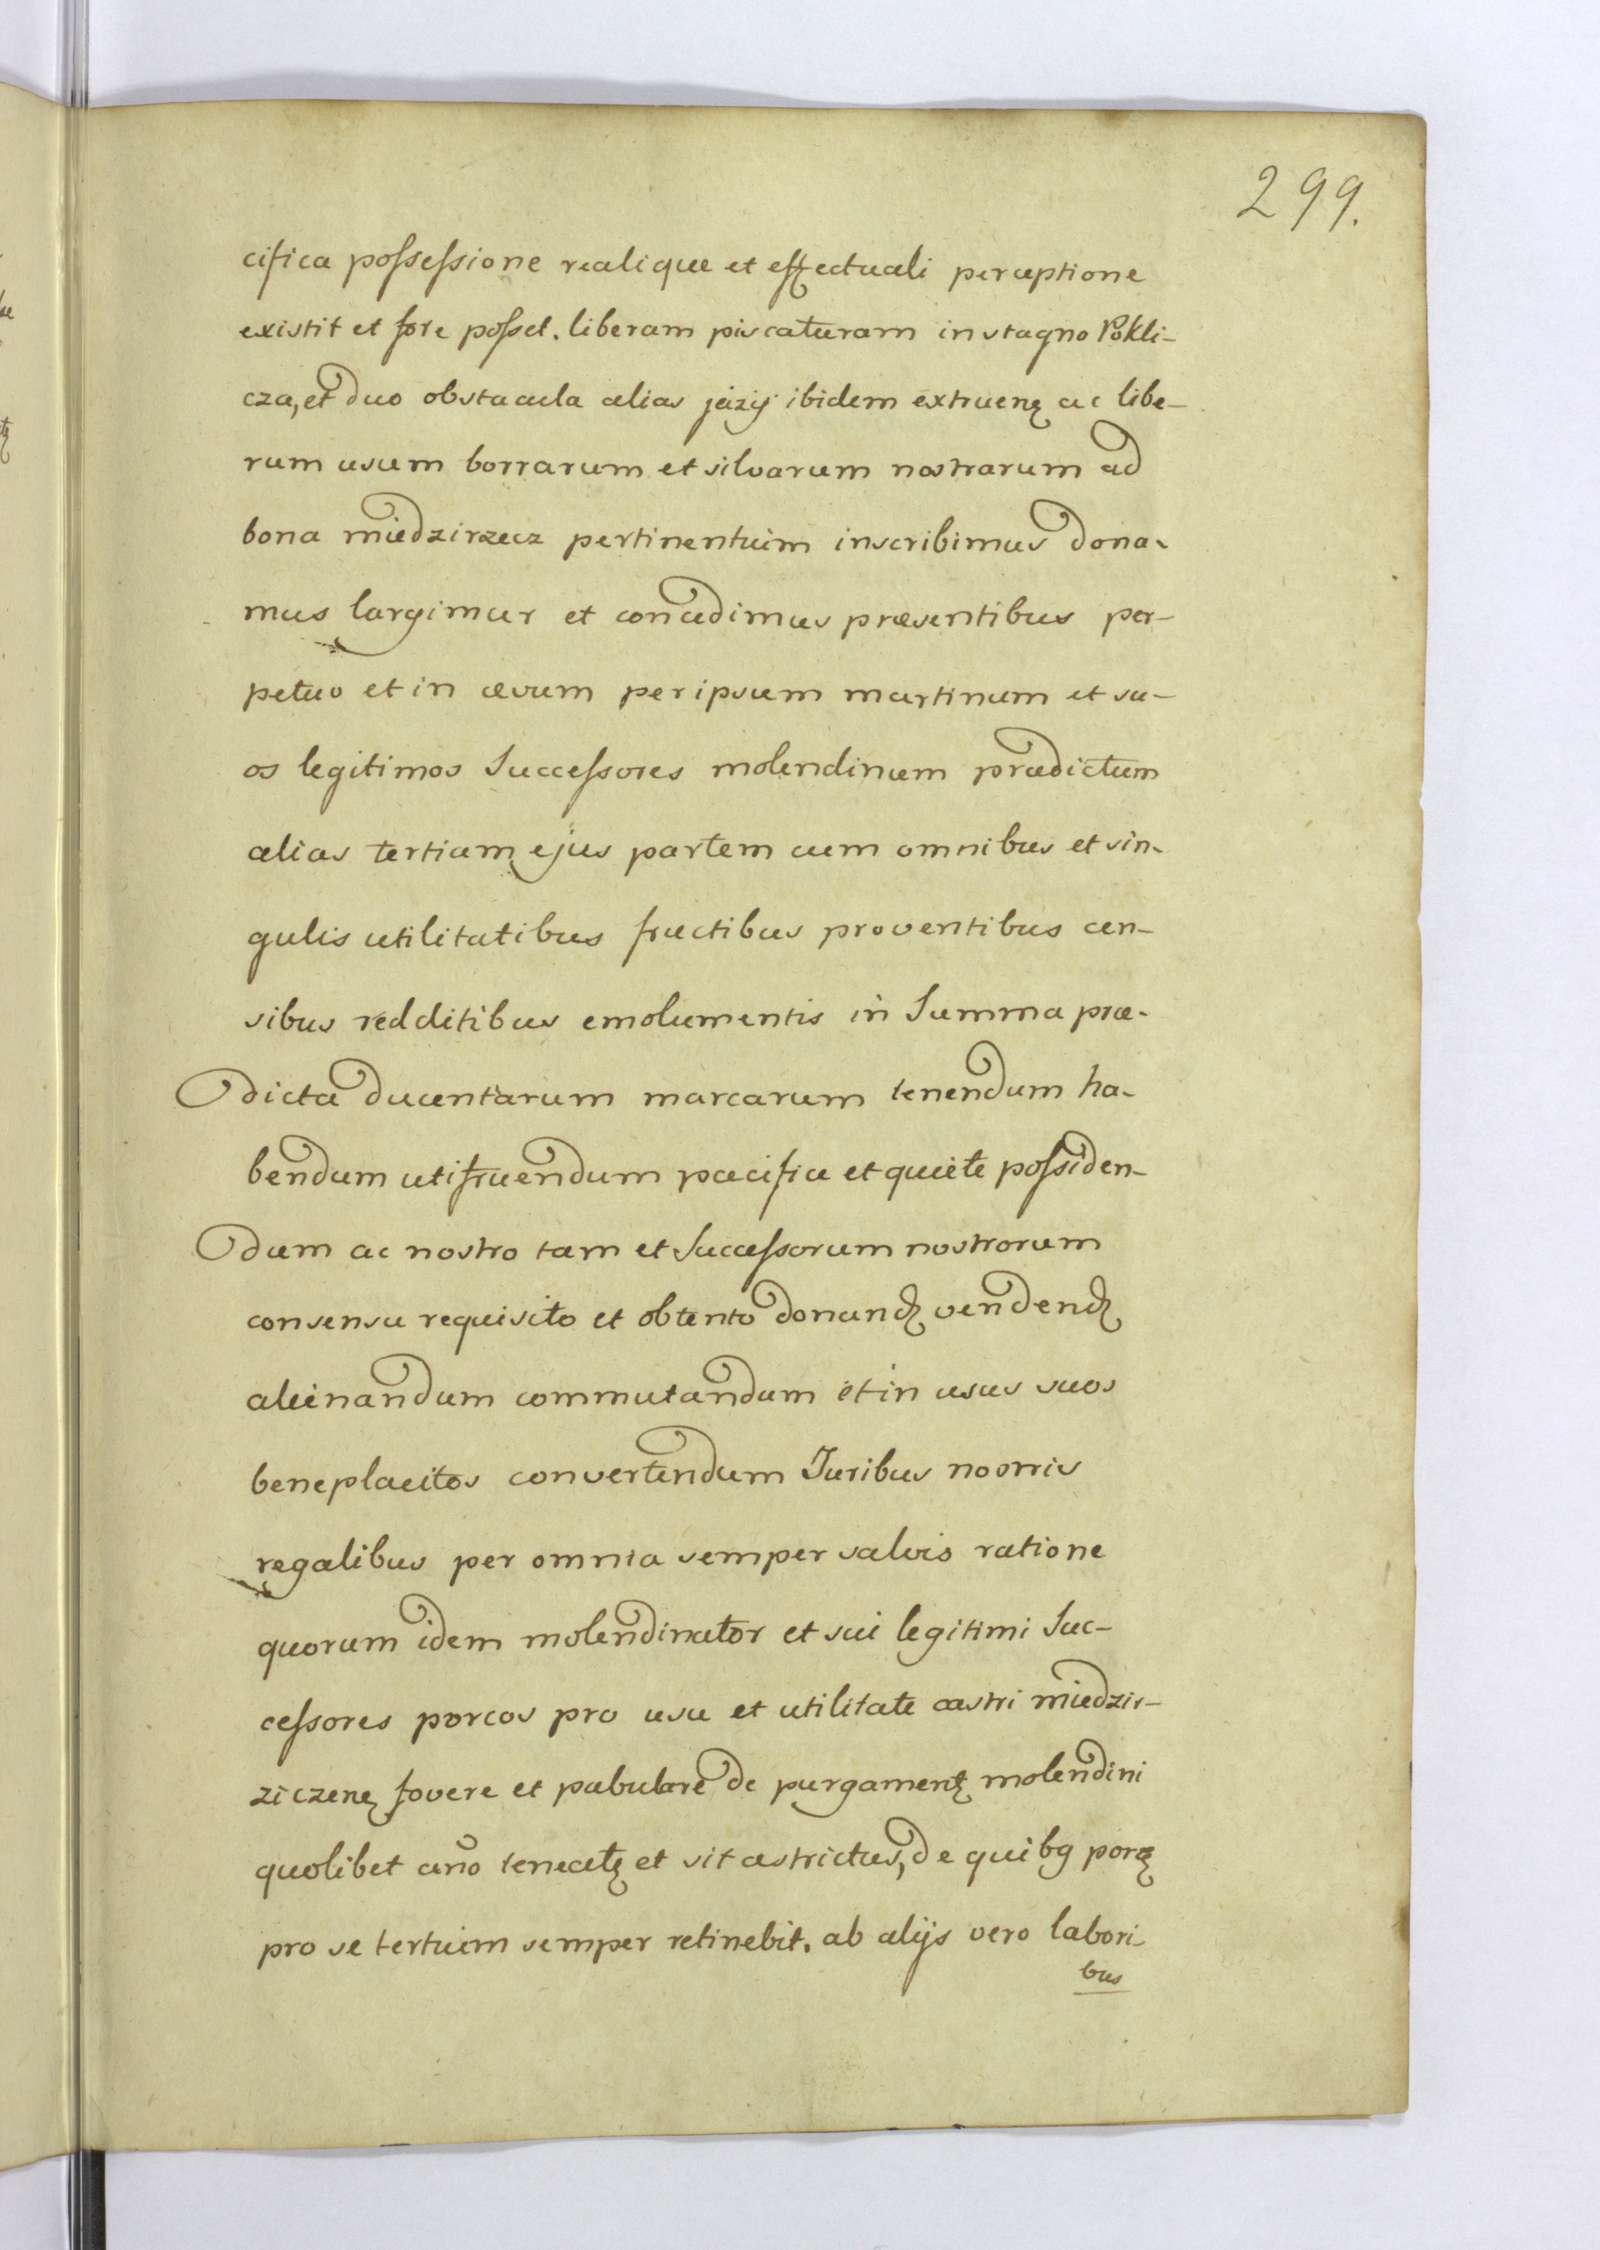 299.
cifica possessione realique et effectuali perceptione
existit et fore posset. liberam piscaturam in stagno Pokli-
cza, et duo obstacula alias jazÿ ibidem extruenę ac libe-
rum usum borrarum et silvarum nostrarum ad
bona miedzirzecz pertinentium inscribimus dona-
mus largimur et concedimus præsentibus per-
petuo et in ævum per ipsum martinum et su-
os legitimos Successores molendinum prædictum
alias tertiam ejus partem cum omnibus et sin-
gulis utilitatibus fructibus proventibus cen-
sibus redditibus emolumentis in Summa præ-
dicta ducentarum marcarum tenendum ha-
bendum utifruendum pacifice et quiete possiden-
dum ac nostro tam et Successorum nostrorum
consensu requisito et obtento donandȝ vendendȝ
alienandum commutandum et in usus suos
beneplacitos convertendum Juribus nostris
regalibus per omnia semper salvis ratione
quorum idem molendinator et sui legitimi Suc-
cessores porcos pro usu et utilitate castri miedzir-
ziczenę fovere et pabulare de purgamentȝ molendini
quolibet año teneatȝ et sit astrictus, de quibg porcȝ
pro se tertium semper retinebit. ab alijs vero labori-
bus